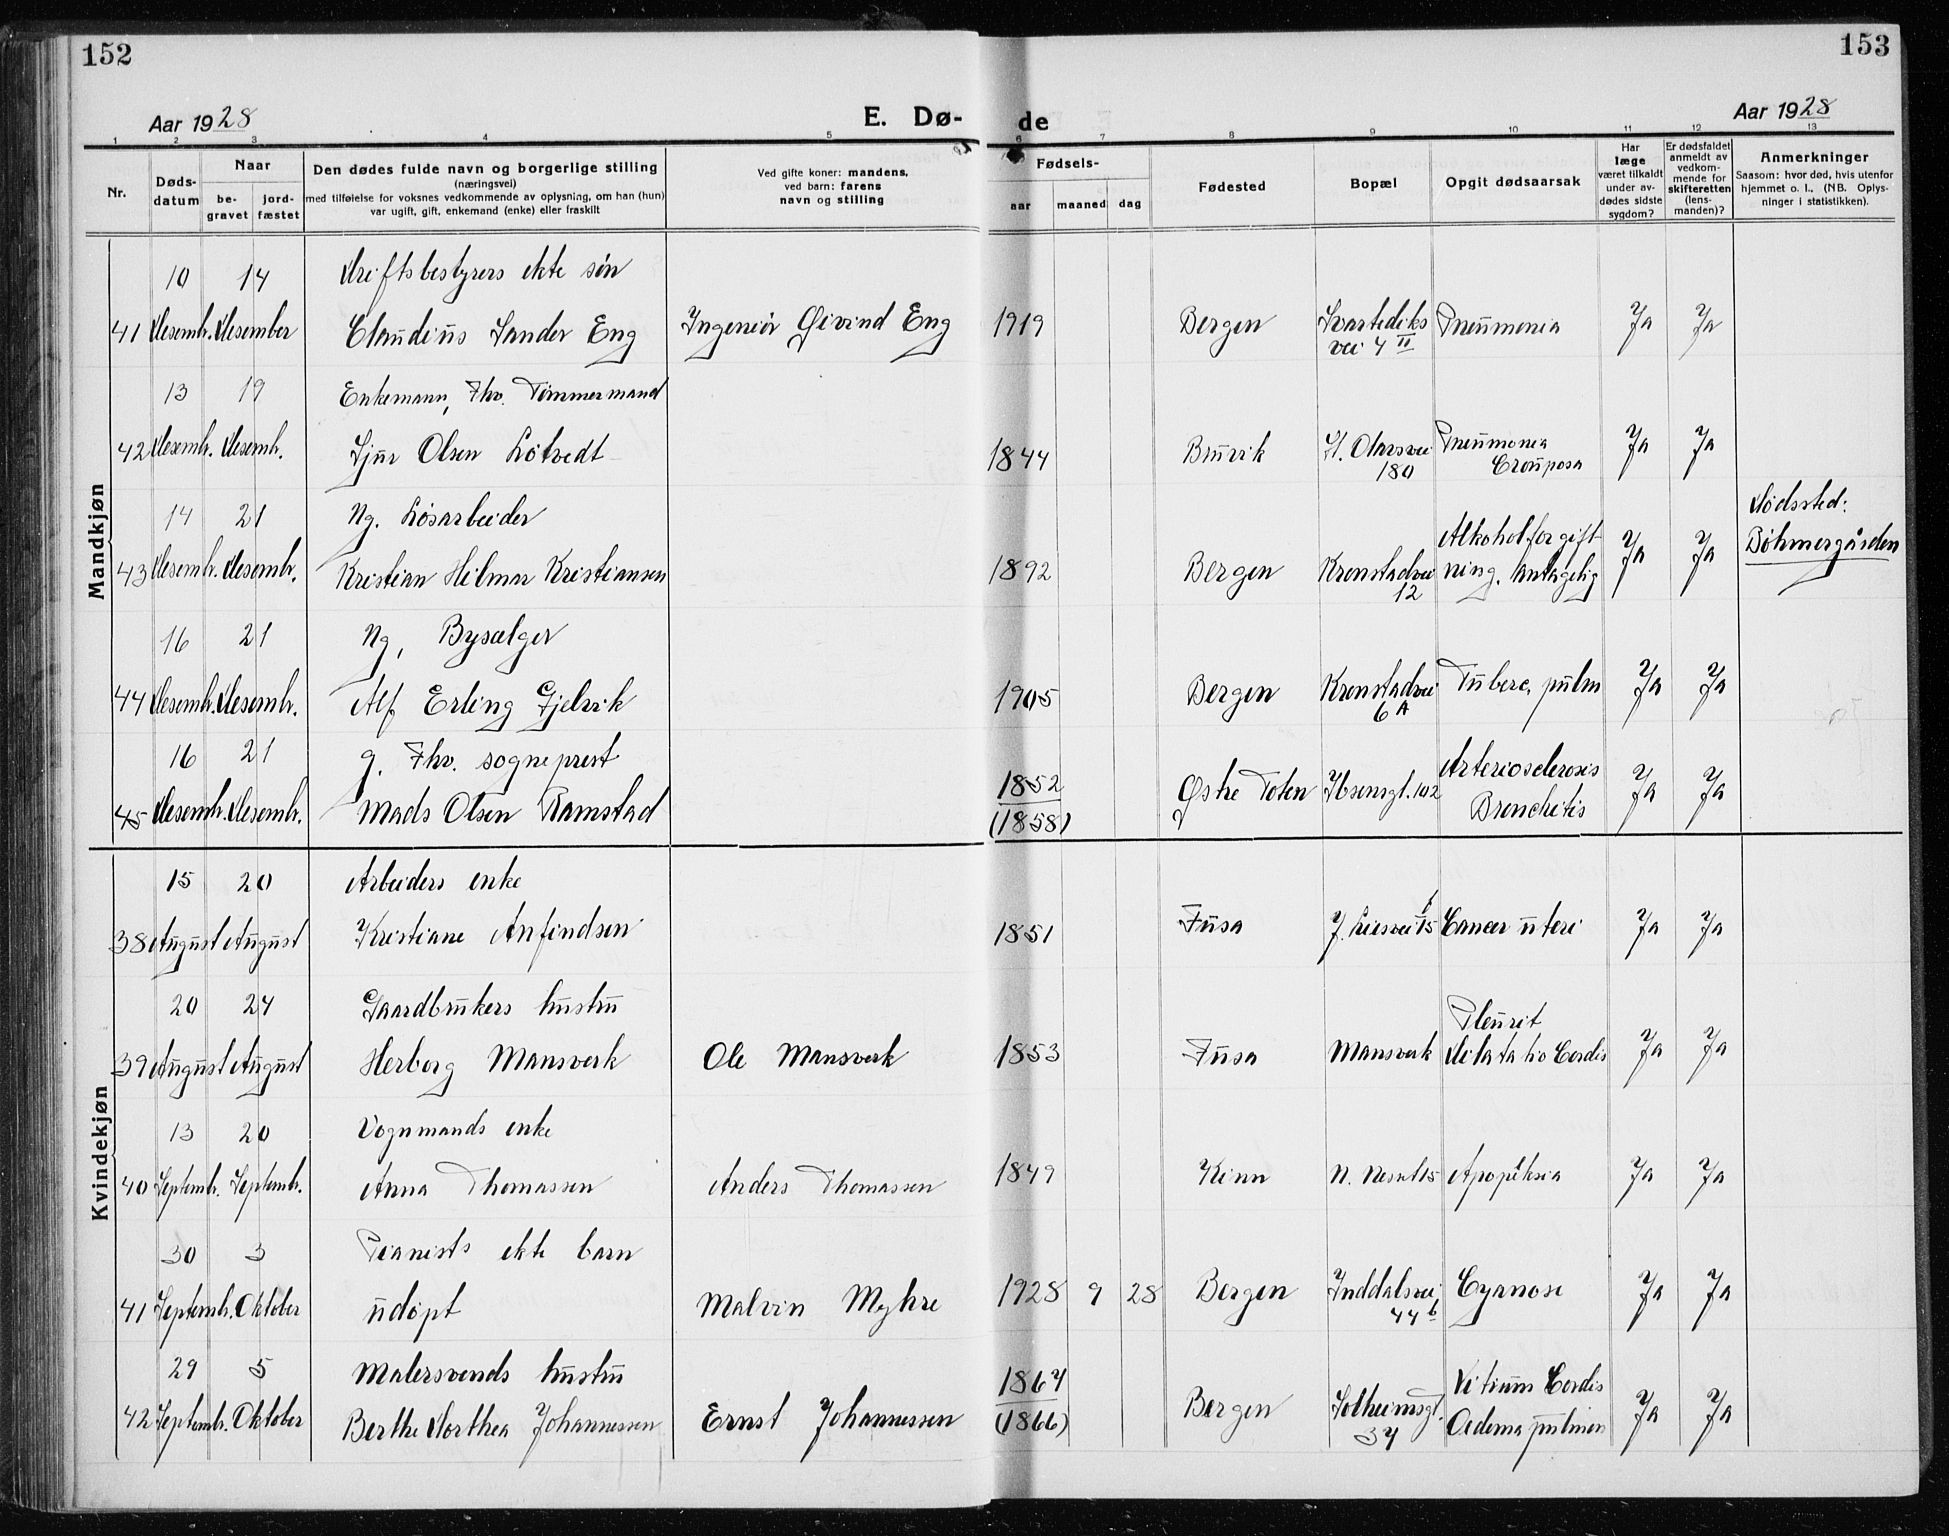 152
153
Aar 1928
E. Dø-
de
Aar 1928
1 2 3 4 5 6 7 8 9 10 11 12 13
Nr.
Døds-
datum
Naar
be-
gravet
jord-
fæstet
Den dødes fulde navn og borgerlige stilling
(næringsvei)
med tilføielse for voksnes vedkommende av oplysning, om han (hun)
var ugift, gift, enkemand (enke) eller fraskilt
Ved gifte koner: mandens,
ved barn: farens
navn og stilling
Fødsels-
aar maaned dag
Fødested
Bopæl
Opgit dødsaarsak
Har
læge
været tilkaldt
under av-
dødes sidste
sygdom?
Er dødsfaldet
anmeldt av
vedkom-
mende for
skifteretten
(lens-
manden)?
Anmerkninger
Saasom: hvor død, hvis utenfor
hjemmet o. l., (NB. Oplys-
ninger i statistikken).
Mandkjøn
10 14 Driftsbestyrers ekte søn
41 Desembr. Desember Claudius Sander Eng Ingeniør Øivind Eng 1919 Bergen Svartediks Pneumonia Ja Ja
vei 4 II
13 19 Enkemann, Fhv. Tømmermand
42 Desembr. Desembr. Sjur Olsen Løtvedt 1844 Bruvik St. Olavsvei Pneumonia Ja Ja
180 Crouposa
14 21 Ug. Løsarbeider Alkoholforgift Dødssted:
43 Desembr. Desembr. Kristian Hilmar Kristiansen 1892 Bergen Kronstadvei ning. Antagelig Ja Ja Bøhmergården
12
16 21 Ug, Bysælger
44 Desembr. Desembr. Alf Erling Gjelvik 1905 Bergen Kronstadvei Tuberc, pulm Ja Ja
6 A
16 21 g. Fhv. sogneprest 1852 Østre Toten Ibsensgt. 102 Arteriosclerosis Ja Ja
45 Desembr. Desembr. Mads Olsen Ramstad (1858) Bronchitis
Kvindekjøn
15 20 Arbeiders enke
38 August August Kristiane Anfindsen 1851 Fusa J. Liesvei 15 b Cancer uteri Ja Ja
20 24 Gaardbrukers hustru Pleurit
39 August August Herborg Mansverk Ole Mansverk 1853 Fusa Mansverk Dilatatio Cordis Ja Ja
13 20 Vognmands enke
40 Septembr. Septembr. Anna Thomassen Anders Thomassen 1849 Kinn N. Nesut15 Apopleksia Ja Ja
30 3 Pianists ekte barn
41 Septembr. Oktober udøpt Malvin Myhre 1928 9 28 Bergen Inddalsvei Cyanose Ja Ja
44 b
29 5 Malersvends hustru 1867 Vitium Cordis
42 Septembr. Oktober Berthe Dorthea Johannessen Ernst Johannessen (1866) Bergen Solheimsgt. Oedema pulmon Ja Ja
34